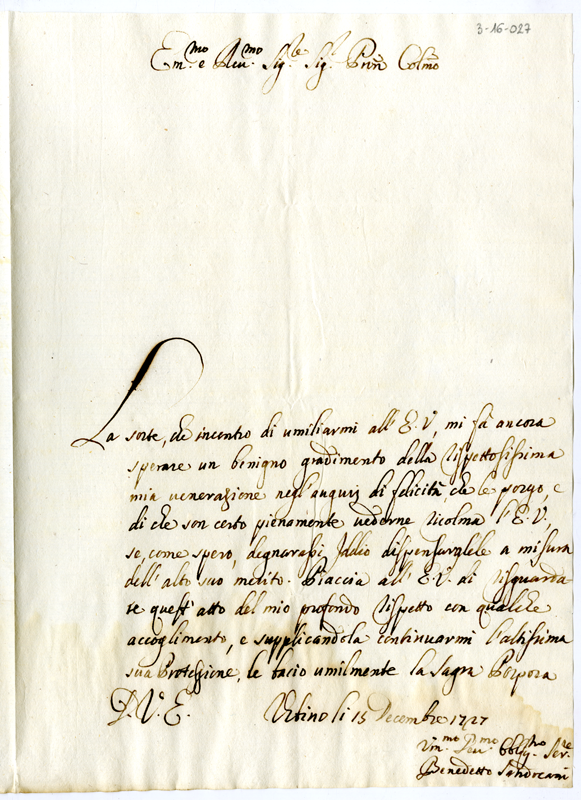 3-16-027
Em.mo e Rev.mo Sig.re Sig. Prn̄ Colmo
La sorte, che incontro di umiliarmi all' E. V, mi fà ancora
sperare un benigno gradimento della rispettosissima
mia venerazione negl'augurj di felicità, che le porgo, e
di che son certo pienamente vederne ricolma l'E. V,
se, come spero, degnarassi Iddio dispensargliele a misura
dell' alto suo merito. Piaccia all' E. V. di risguarda-
re quest' atto del mio profondo rispetto con qualche
accoglimento, e supplicandola continuarmi l'altissima
sua Protezione, le bacio umilmente la Sagra Porpora
D. V. E. Urbino li 15 Decembre 1727
Um.mo Dev.mo Oblig.mo Ser.re
Benedetto